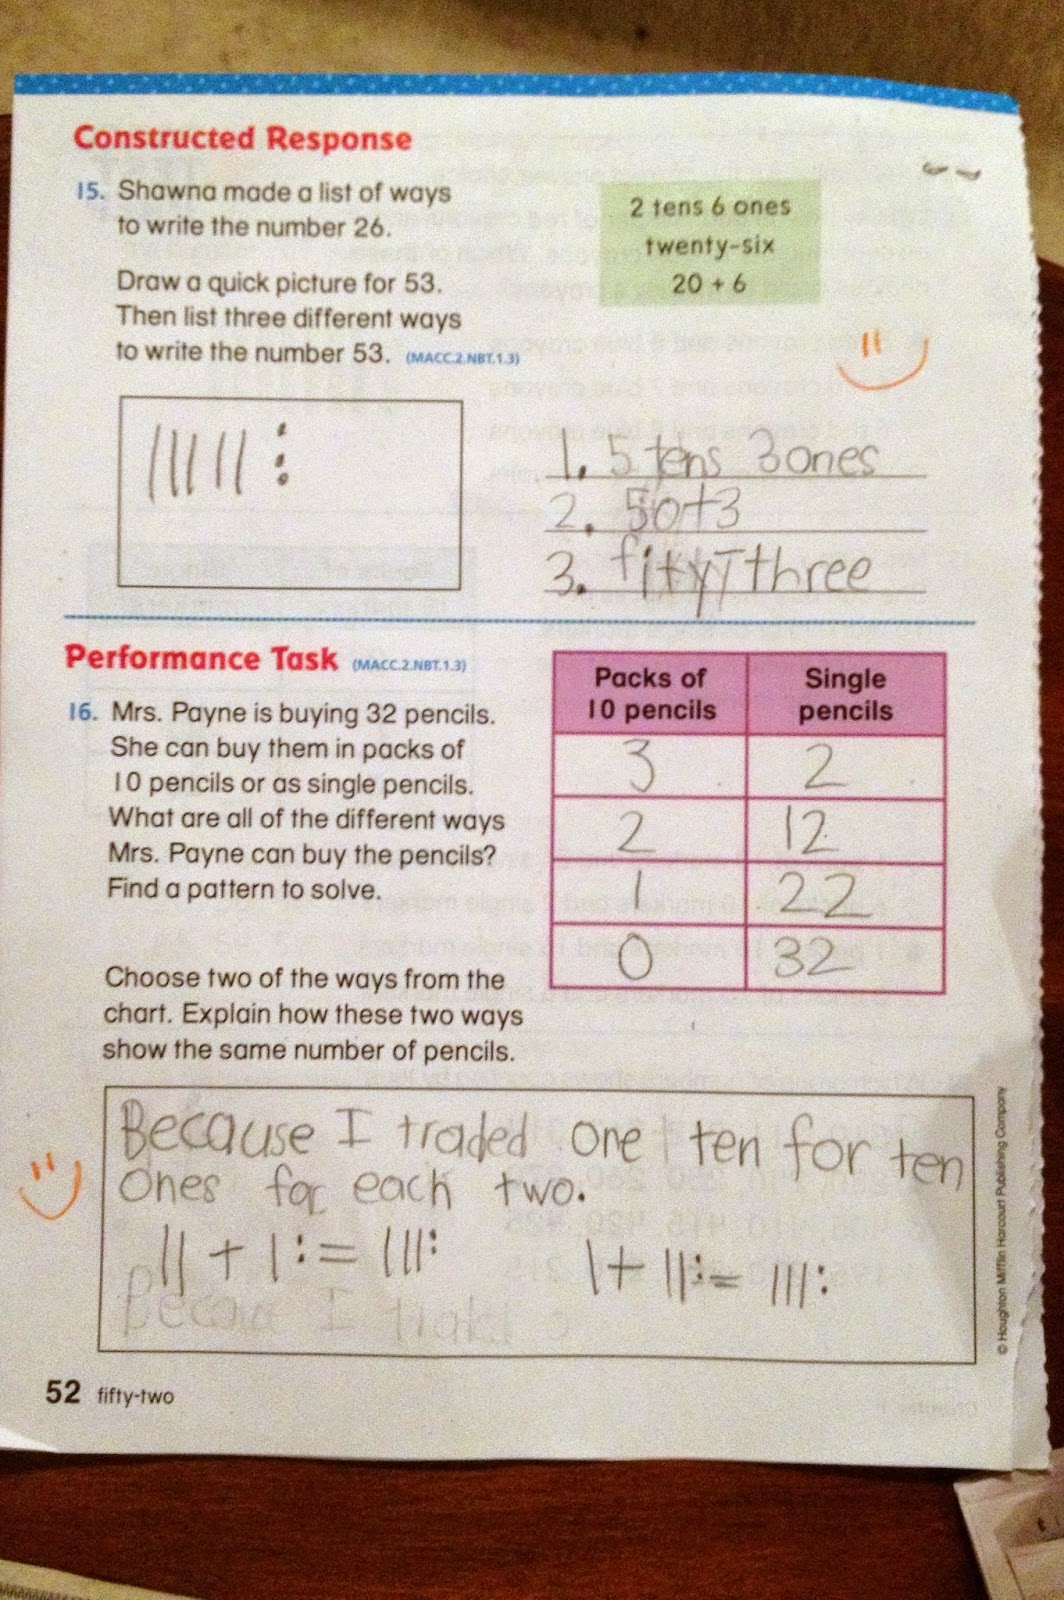 Constructed Response
15. Shawna made a list of ways
to write the number 26.
2 tens 6 ones
twenty-six
20 + 6
Draw a quick picture for 53.
Then list three different ways
to write the number 53. (MACC.2.NBT.1.3)
1. 5 tens 3 ones
2. 50+3
3. fifty-three
Performance Task (MACC.2.NBT.1.3)
16. Mrs. Payne is buying 32 pencils.
She can buy them in packs of
10 pencils or as single pencils.
What are all of the different ways
Mrs. Payne can buy the pencils?
Find a pattern to solve.
Packs of 10 pencils Single pencils
3 2
2 12
1 22
0 32
Choose two of the ways from the
chart. Explain how these two ways
show the same number of pencils.
Because I traded one ten for ten
ones for each two.
|| + |: = |||:
| + ||: = |||:
© Houghton Mifflin Harcourt Publishing Company
52 fifty-two